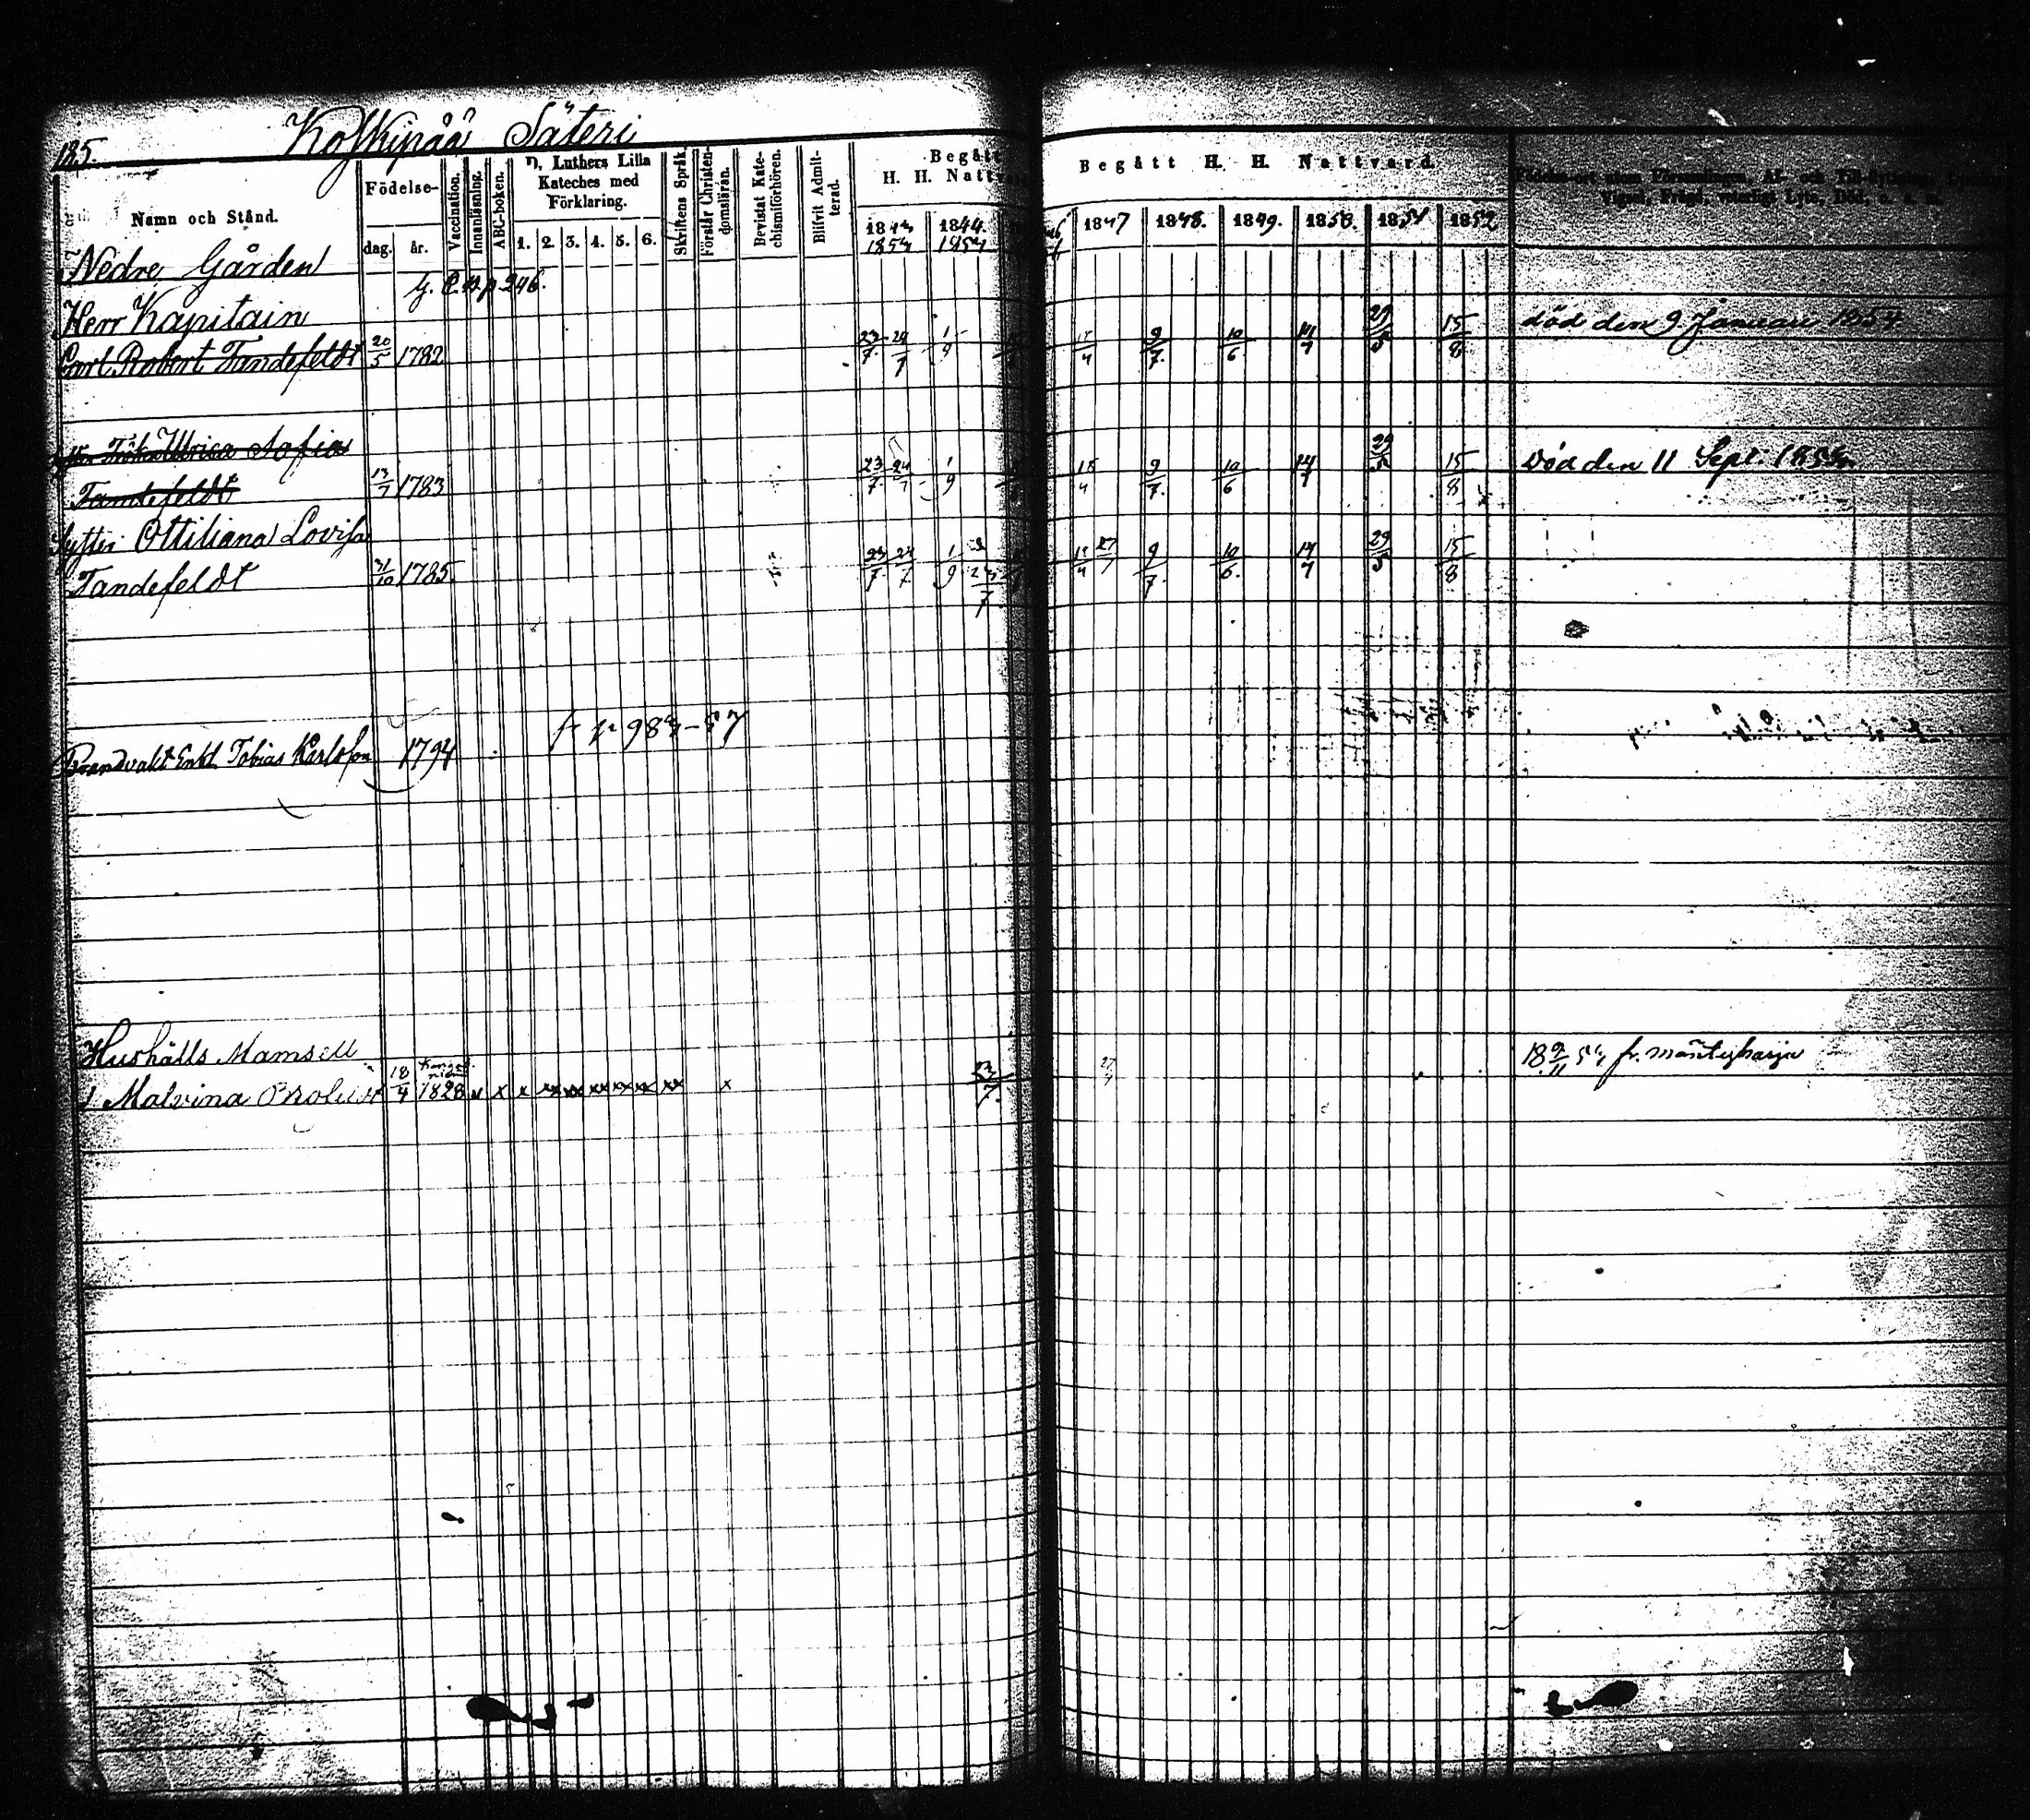 185. Koskipää Säteri
Namn och Stånd.
Födelse-
dag. år.
Vaccination.
Innanläsning.
ABC-boken.
D. Luthers Lilla
Kateches med
Förklaring.
1. 2. 3. 4. 5. 6.
Skriftens Språk.
Förstår Christen-
domsläran.
Bevistat Kate-
chismiförhören.
Blifvit Admit-
terad.
Begått
H. H. Nattv
1843 1844.
1853 1854
Begått H. H. Nattvard.
1847 1848. 1849. 1850. 1851 1852
Födelse-ort utom Församlingen, Af- och Till-flyttning,
Vigsel, Frägd, veterligt Lyte, Död, o. s. m.
Nedre Gården
G. C. B. p 246.
Herr Kapitain
Carl Robert Tandefeldt 20/5 1782 23/7 24/7 1/9 9/7. 10/6 14/7 29/5 15/8 död den 9 Januari 1854
Ulrica Sofia
Tandefeldt 13/7 1783 23/7 24/7 1/9 9/7. 10/6 14/7 29/5 15/8 Död den 11 Sept. 1853
Syster Ottiliana Lovisa
Tandefeldt 31/10 1785. 23/7. 24/7 1/9 23/7 27/7 9/7. 10/6. 14/7 29/5 15/8
fr p 983-57
Brandvakt Enkl. Tobias Karlsson 1794
Hushålls Mamsell
Malvina 18/4 1828 x x x xx xx xx xx xx xx x 23/7. 27/7 18 9/11 54 fr. Mäntyharju